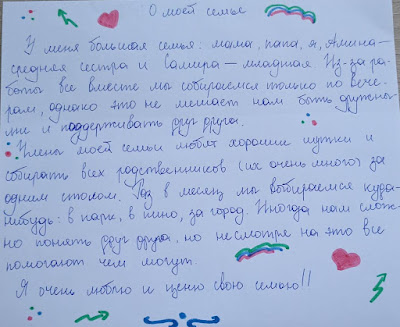 О моей семье
У меня большая семья: мама, папа, я, Амина –
средняя сестра и Салира – младшая. Из-за ра-
боты все вместе мы собираемся только по вече-
рам, однако это не мешает нам быть дружны-
ми и поддерживать друг друга.
Члены моей семьи любят хорошие шутки и
собирать всех родственников (их очень много) за
одним столом. Раз в месяц мы выбираемся куда-
нибудь: в парк, в кино, за город. Иногда нам слож-
но понять друг друга, но несмотря на это все
помогают чем могут.
Я очень люблю и ценю свою семью!!